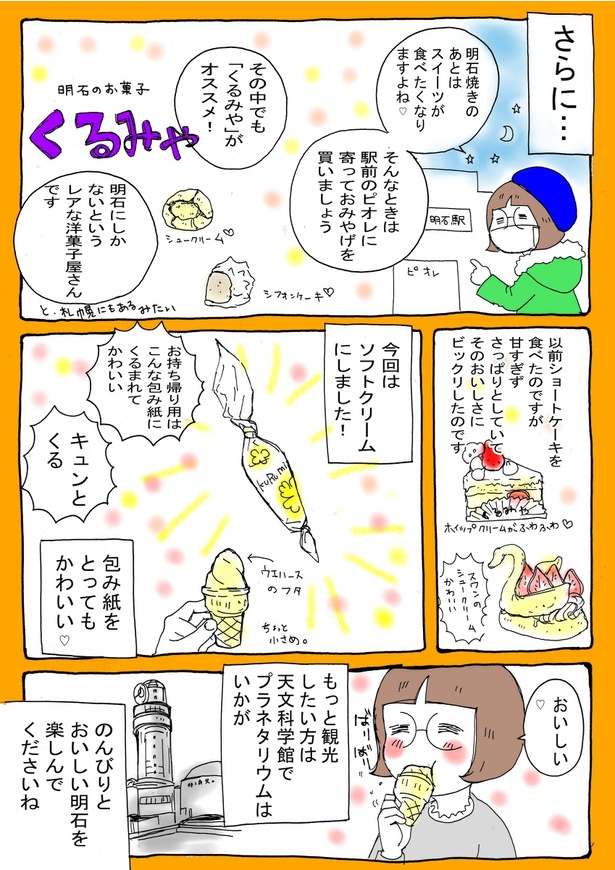 さらに…
明石焼きの
あとは
スイーツが
食べたくなり
ますよね♡
そんなときは
駅前のピオレに
寄っておみやげを
買いましょう
明石駅
ピオレ
その中でも
「くるみや」が
オススメ！
明石のお菓子
くるみや
シュークリーム♡
シフォンケーキ♡
明石にしか
ないという
レアな洋菓子屋さん
です
と、札幌にもあるみたい
以前ショートケーキを
食べたのですが
甘すぎず
さっぱりとしていて
そのおいしさに
ビックリしたのです
くるみや
ホイップクリームがふわふわ♡
スワンの
シュークリーム
かわいい
今回は
ソフトクリーム
にしました！
お持ち帰り用は
こんな包み紙に
くるまれて
かわいい
KuRumi
キュンと
くる
ウエハース
のフタ
ちょっと
小さめ。
包み紙を
とっても
かわいい♡
おいしい♡
ぱりぱり
もっと観光
したい方は
天文科学館で
プラネタリウムは
いかが
のんびりと
おいしい明石を
楽しんで
くださいね